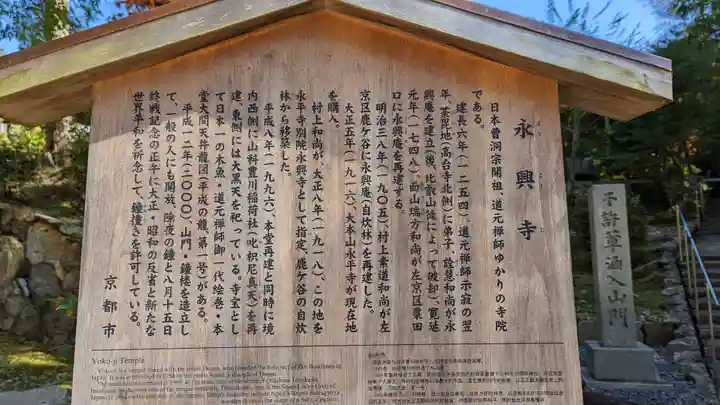 永興寺
日本曹洞宗開祖、道元禅師ゆかりの寺院
である。
建長六年(一二五四)、道元禅師示寂の翌
年、荼毘地(高台寺北側)に弟子、詮慧和尚が永
興庵を建立(後、比叡山徒によって破却)、寛延
元年(一七四八)、面山瑞方和尚が左京区粟田
口に永興庵を再建する。
明治三八年(一九〇五)、村上素道和尚が左
京区鹿ケ谷に永興庵(自炊林)を再建した。
大正五年(一九一六)、大本山永平寺が現在地
を購入。
村上和尚が、大正八年(一九一八)、この地を
永平寺別院永興寺として指定、鹿ケ谷の自炊
林から移築した。
平成八年(一九九六)、本堂再建と同時に境
内西側に山科豊川稲荷社(吒枳尼真天)を再
建、東側には大黒天を祀っている。寺宝とし
て日本一の木魚・道元禅師御一代絵巻・本
堂大間天井龍図(平成の龍、第一号)がある。
平成一二年(二〇〇〇)、山門・鐘楼を造立し
て、一般の人にも開放、除夜の鐘と八月十五日
終戦記念の正午に大正・昭和の反省と新たな
世界平和を祈念して、鐘撞きを許可している。
京都市
Yoko-ji Temple
不許葷酒入山門